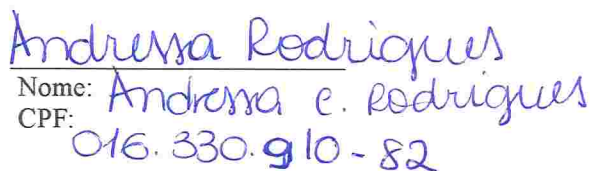 Andressa Rodrigues
Nome: Andressa C. Rodrigues
CPF:
016.330.910-82